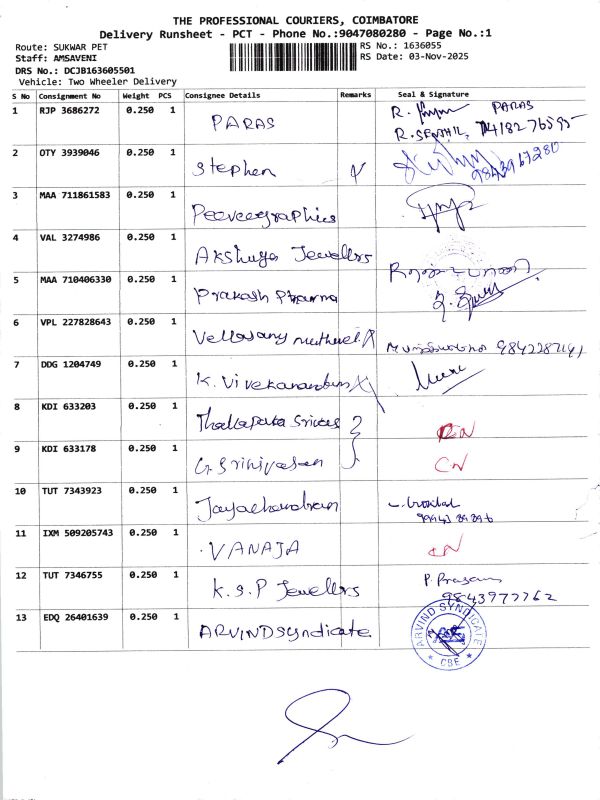 THE PROFESSIONAL COURIERS, COIMBATORE
Delivery Runsheet - PCT - Phone No.:9047080280 - Page No.:1
Route: SUKWAR PET
RS No.: 1636055
Staff: AMSAVENI
RS Date: 03-Nov-2025
DRS No.: DCJB163605501
Vehicle: Two Wheeler Delivery
S No Consignment No Weight PCS Consignee Details Remarks Seal & Signature
1 RJP 3686272 0.250 1 PARAS PARAS
R. SENTHIL,
2 OTY 3939046 0.250 1 Stephen
3 MAA 711861583 0.250 1 Peeveegraphics
4 VAL 3274986 0.250 1 Akshaya Jewellers
5 MAA 710406330 0.250 1 Prakash Pharma
6 VPL 227828643 0.250 1
7 DDG 1204749 0.250 1 K. Vivekanandan
8 KDI 633203 0.250 1 CN
9 KDI 633178 0.250 1 G. Srinivasan CN
10 TUT 7343923 0.250 1 Jayachandran
11 IXM 509205743 0.250 1 VANAJA CN
12 TUT 7346755 0.250 1 K.S.P Jewellers
9843977762
13 EDQ 26401639 0.250 1 ARVIND Syndicate ARVIND SYNDICATE
* CBE *